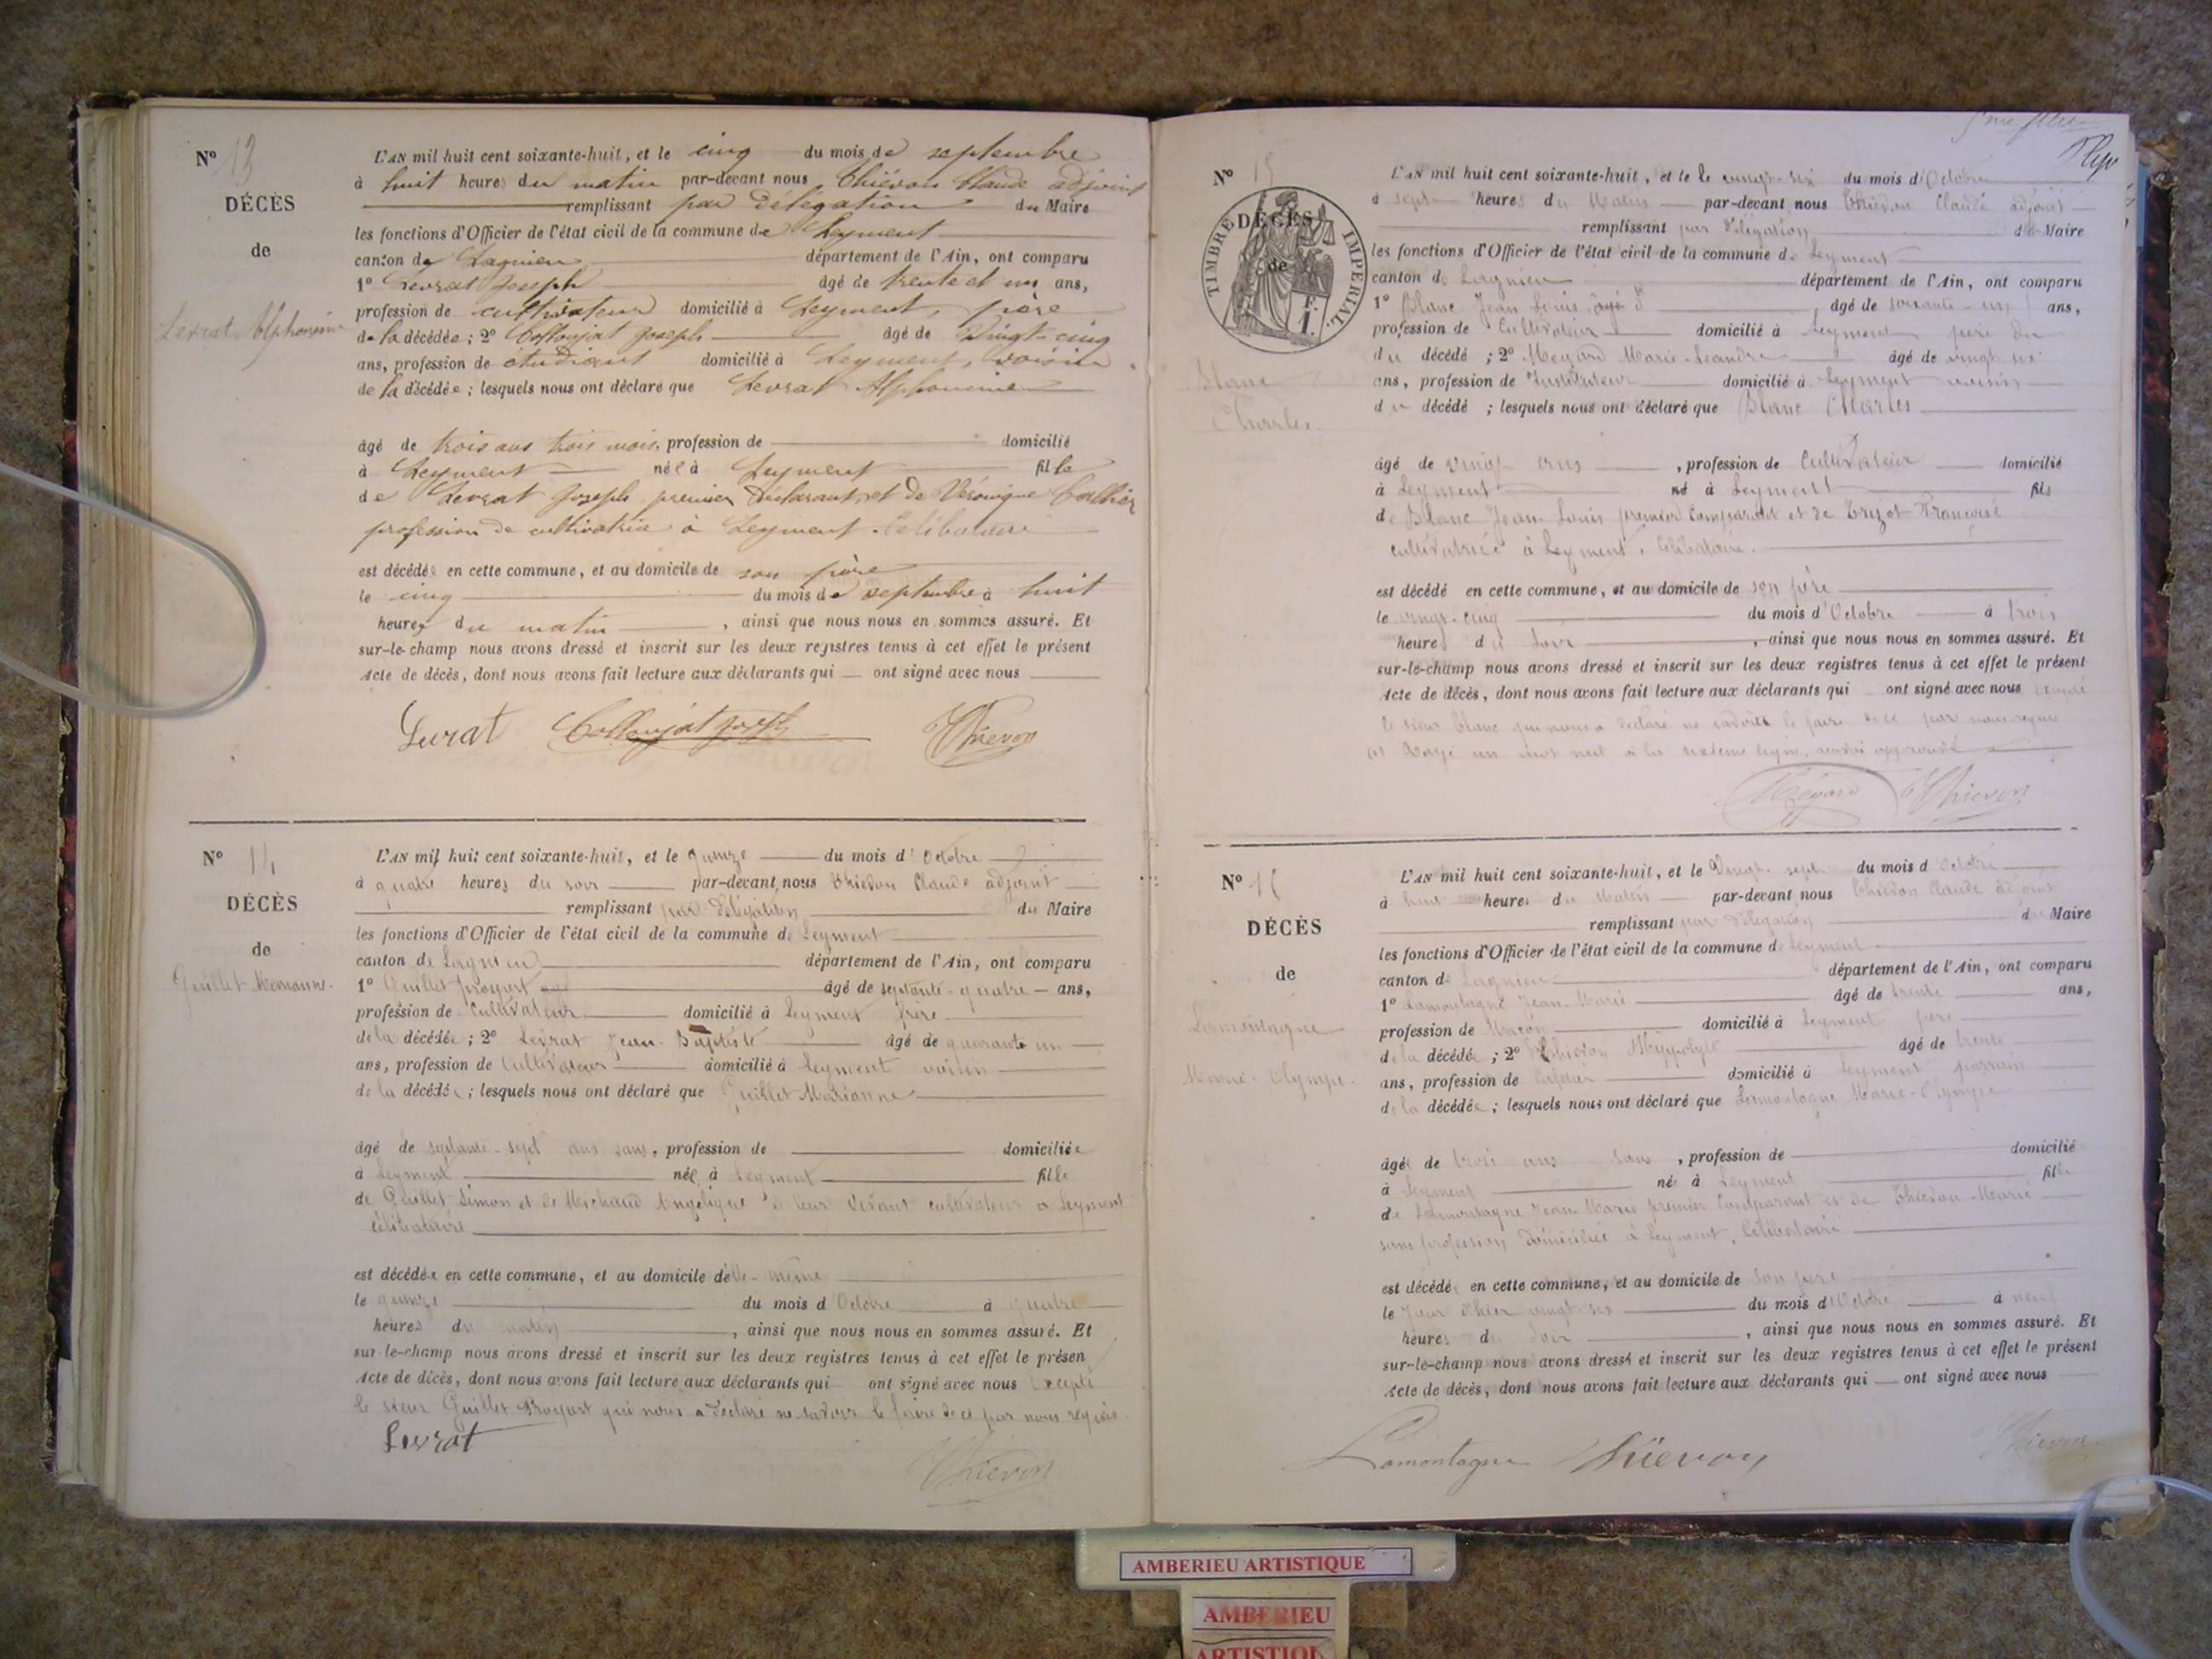 N° 13
DÉCÈS
de
Levrat Alphonsine
L'AN mil huit cent soixante-huit, et le cinq du mois de septembre
à huit heures du matin par-devant nous Chiévon Claude adjoint
remplissant par délégation du Maire
les fonctions d'Officier de l'état civil de la commune de Leyment
canton de Lagnieu département de l'Ain, ont comparu
1° Levrat Joseph âgé de trente et un ans,
profession de cultivateur domicilié à Leyment, père
de la décédée ; 2° Colloujat Joseph âgé de vingt-cinq
ans, profession de étudiant domicilié à Leyment, voisin
de la décédée ; lesquels nous ont déclaré que Levrat Alphonsine
âgé de trois ans trois mois, profession de domicilié
à Leyment née à Leyment fille
de Levrat Joseph premier déclarant, et de Véronique
profession de cultivatrice à Leyment. Célibataire
est décédée en cette commune, et au domicile de son père
le cinq du mois de septembre à huit
heures du matin , ainsi que nous nous en sommes assuré. Et
sur-le-champ nous avons dressé et inscrit sur les deux registres tenus à cet effet le présent
Acte de décès, dont nous avons fait lecture aux déclarants qui ont signé avec nous
Levrat Colloujat Joseph Chievon
N° 14
DÉCÈS
de
Guillet Marianne
L'AN mil huit cent soixante-huit, et le quinze du mois d'Octobre
à quatre heures du soir par-devant nous Chievon Claude adjoint
remplissant par délégation du Maire
les fonctions d'Officier de l'état civil de la commune de Leyment
canton de Lagnieu département de l'Ain, ont comparu
1° Guillet âgé de septante-quatre ans,
profession de Cultivateur domicilié à Leyment frère
de la décédée ; 2° Levrat Jean-Baptiste âgé de quarante un
ans, profession de Cultivateur domicilié à Leyment voisin
de la décédée ; lesquels nous ont déclaré que Guillet Marianne
âgé de septante-sept ans sans, profession de domiciliée
à Leyment née à Leyment fille
de Guillet Simon et de Michaud Angélique de leur vivant cultivateurs à Leyment
célibataire
est décédée en cette commune, et au domicile d'elle-même
le quinze du mois d'Octobre à quatre
heures du matin , ainsi que nous nous en sommes assuré. Et
sur-le-champ nous avons dressé et inscrit sur les deux registres tenus à cet effet le présen
Acte de décès, dont nous avons fait lecture aux déclarants qui ont signé avec nous excepté
le sieur Guillet qui nous a déclaré ne savoir le faire de ce par nous requis.
Levrat Chievon
N° 15
TIMBRE IMPERIAL.
DÉCÈS
de
Blanc
Charles
L'AN mil huit cent soixante-huit, et le le vingt-six du mois d'Octobre
à sept heures du Matin par-devant nous Chievon Claude adjoint
remplissant par délégation du Maire
les fonctions d'Officier de l'état civil de la commune de Leyment
canton de Lagnieu département de l'Ain, ont comparu
1° Blanc Jean Louis âgé de soixante-un ans,
profession de Cultivateur domicilié à Leyment père du
du décédé ; 2° Megard Marie-Léandre âgé de vingt six
ans, profession de Instituteur domicilié à Leyment voisin
du décédé ; lesquels nous ont déclaré que Blanc Charles
âgé de vingt ans , profession de Cultivateur domicilié
à Leyment né à Leyment fils
de Blanc Jean-Louis premier Comparant et de Françoise
cultivatrice à Leyment. Célibataire.
est décédé en cette commune, et au domicile de son père
le vingt-cinq du mois d'Octobre à trois
heures du soir , ainsi que nous nous en sommes assuré. Et
sur-le-champ nous avons dressé et inscrit sur les deux registres tenus à cet effet le présent
Acte de décès, dont nous avons fait lecture aux déclarants qui ont signé avec nous excepté
le sieur Blanc qui nous a déclaré ne savoir le faire de ce par nous requis
(1) Rayé un mot nul à la sixième ligne, renvoi approuvé
Mégard Chievon
N° 16
DÉCÈS
de
Lamontagne
Marie-Olympe.
L'AN mil huit cent soixante-huit, et le Vingt-sept du mois d'Octobre
à huit heures du Matin par-devant nous Chievon Claude adjoint
remplissant par délégation du Maire
les fonctions d'Officier de l'état civil de la commune de Leyment
canton de Lagnieu département de l'Ain, ont comparu
1° Lamontagne Jean-Marie âgé de trente ans,
profession de Maçon domicilié à Leyment père
de la décédée ; 2° Chievon Hyppolyte âgé de trente
ans, profession de domicilié à Leyment parrain
de la décédée ; lesquels nous ont déclaré que Lamontagne Marie-Olympe
âgée de trois ans sans , profession de domicilié
à Leyment née à Leyment fille
de Lamontagne Jean Marie premier Comparant et de Chievon Marie
sans profession domiciliée à Leyment, Célibataire
est décédée en cette commune, et au domicile de son père
le jour d'hier vingt-six du mois d'Octobre à neuf
heures du soir , ainsi que nous nous en sommes assuré. Et
sur-le-champ nous avons dressé et inscrit sur les deux registres tenus à cet effet le présent
Acte de décès, dont nous avons fait lecture aux déclarants qui ont signé avec nous
Lamontagne Chievon Chievon
AMBERIEU ARTISTIQUE
AMBERIEU
ARTISTIQU